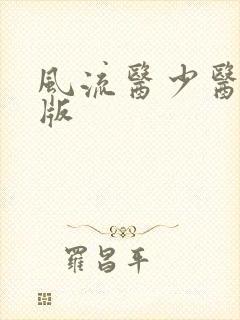 風流醫少醫
版
羅昌平